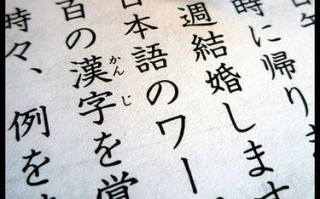 時に帰りま
週結婚します
日本語のワー
百の漢字を覚
かんじ
時々、例を